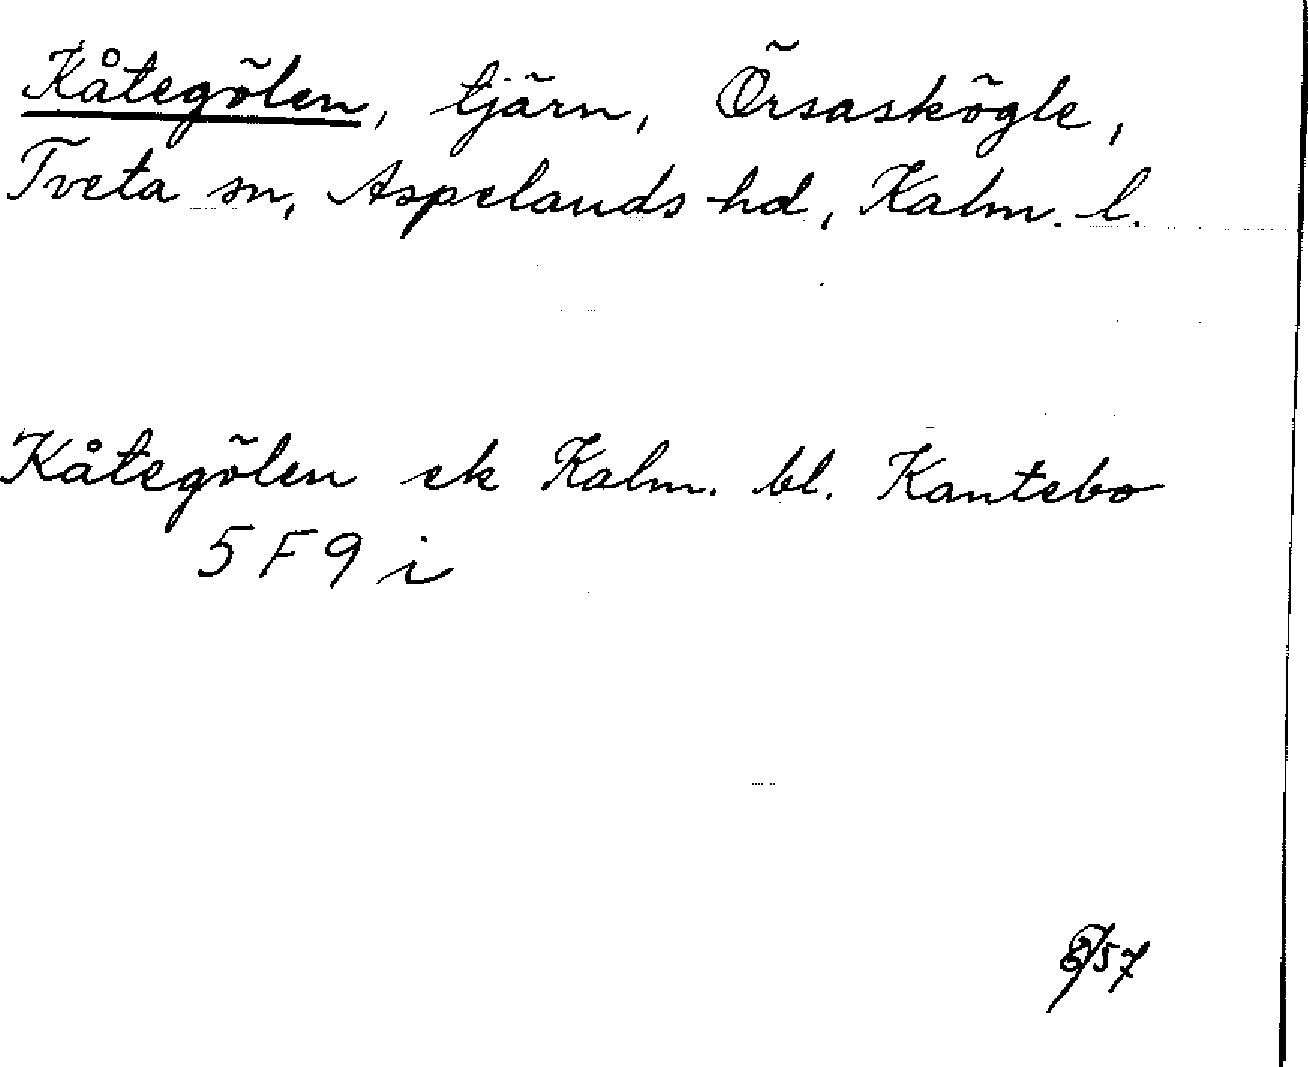 Kåtegölen, tjärn, Örsaskögle,
Tveta sn, Aspelands hd, Kalm. l.
Kåtegölen ek Kalm. bl. Kantebo
5 F 9 i
/57